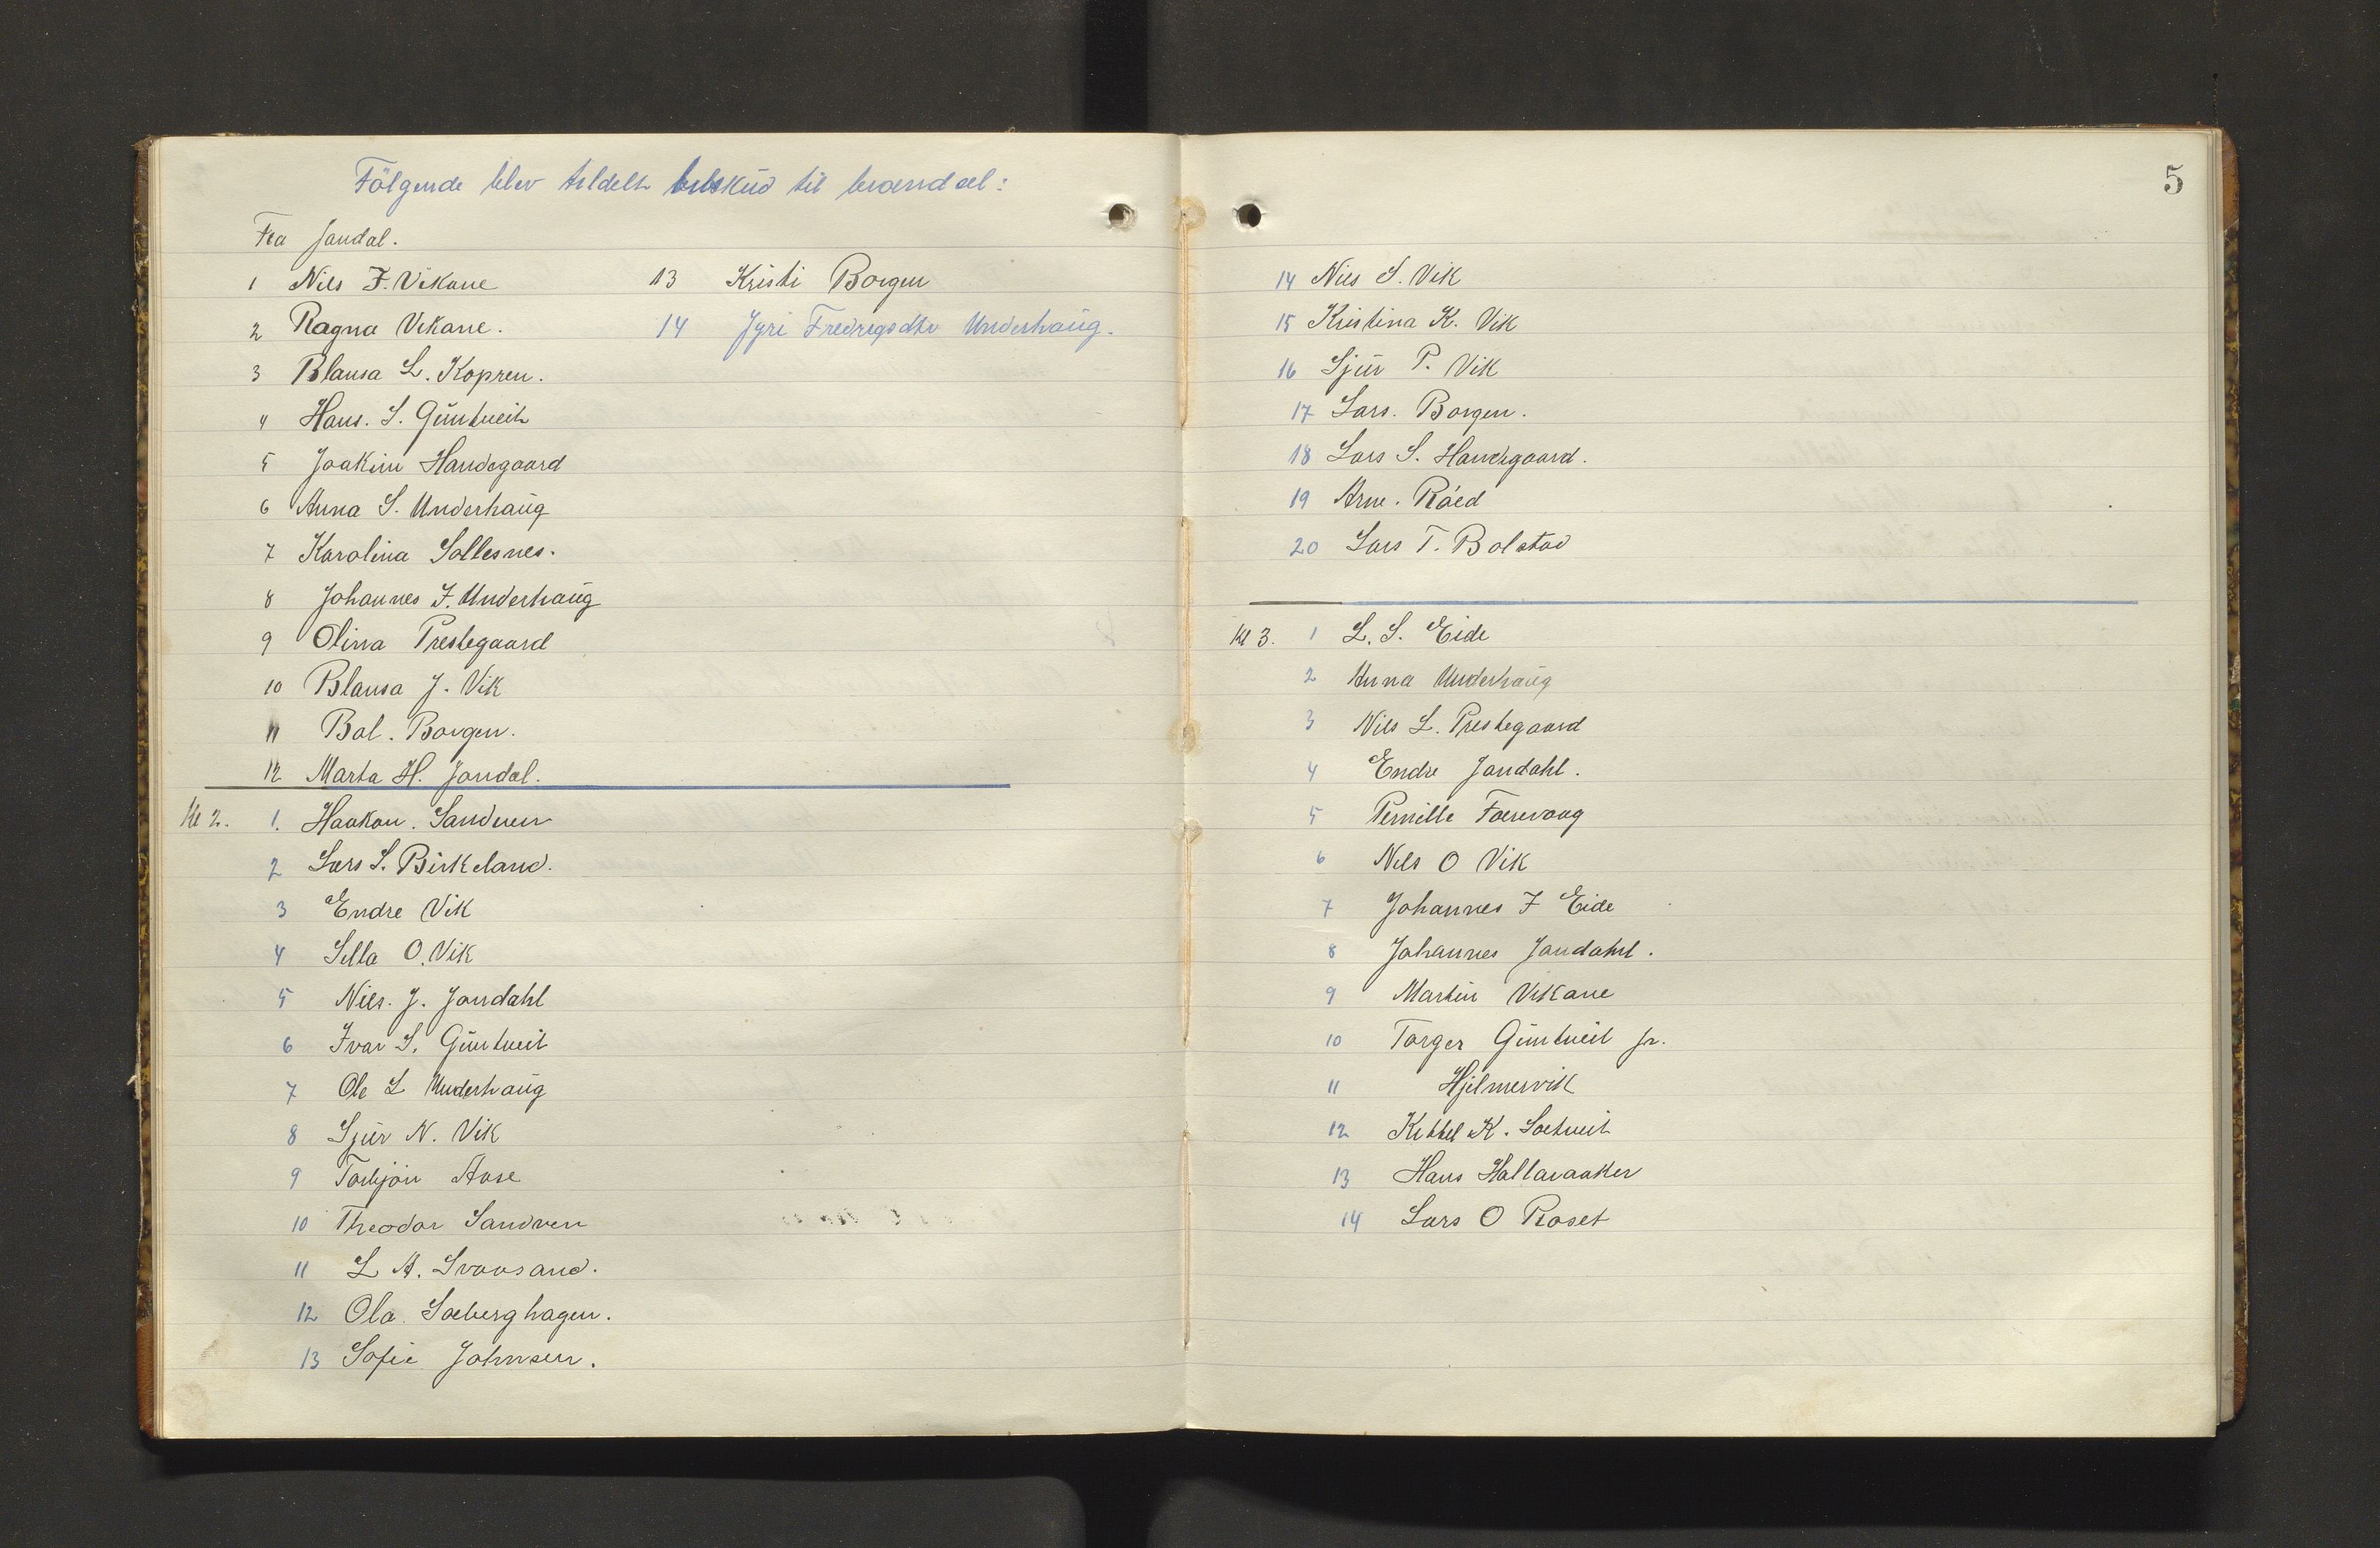 Fölgende blev tildelt tilskud til brændsel:
Fra Jondal.
1 Nils J. Vikane
2 Ragna Vikane.
3 Blansa L. Kopren.
4 Hans. S. Güntveit
5 Joakim Handegaard
6 Anna S. Underhaüg
7 Karolina Sollesnes.
8 Johannes J. Underhaüg
9 Olina Prestegaard
10 Blansa J. Vik
11 Bal. Borgen.
12 Marta H. Jondal.
13 Kristi Borgen
14 Jyri Fredrigsdtr Underhaüg.
Kl 2. 1. Haakon. Sandven
2 Lars S. Birkeland.
3 Endre Vik
4 Silla O. Vik
5 Nils. J. Jondahl
6 Ivar S. Güntveit
7 Ole L Underhaüg
8 Sjür N. Vik
9 Torbjön Aase
10 Theodor Sandven
11 L A. Svaasand.
12 Ola Solberghagen.
13 Sofie Johnsen.
5
14 Nils S. Vik
15 Kristina K. Vik
16 Sjür P. Vik
17 Lars. Borgen.
18 Lars S. Handegaard.
19 Arne. Råed
20 Lars T. Bolstad
Kl 3. 1 L. S. Eide
2 Anna Underhaüg
3 Nils L. Prestegaard
4 Endre Jondahl.
5 Pernille Foerevaag
6 Nils O Vik
7 Johannes J Eide
8 Johannes Jondahl.
9 Martin Vikane
10 Torger Güntveit jr.
11 Hjelmervik
12 Kittel K. Soetveit
13 Hans Hallaraaker
14 Lars O Roset